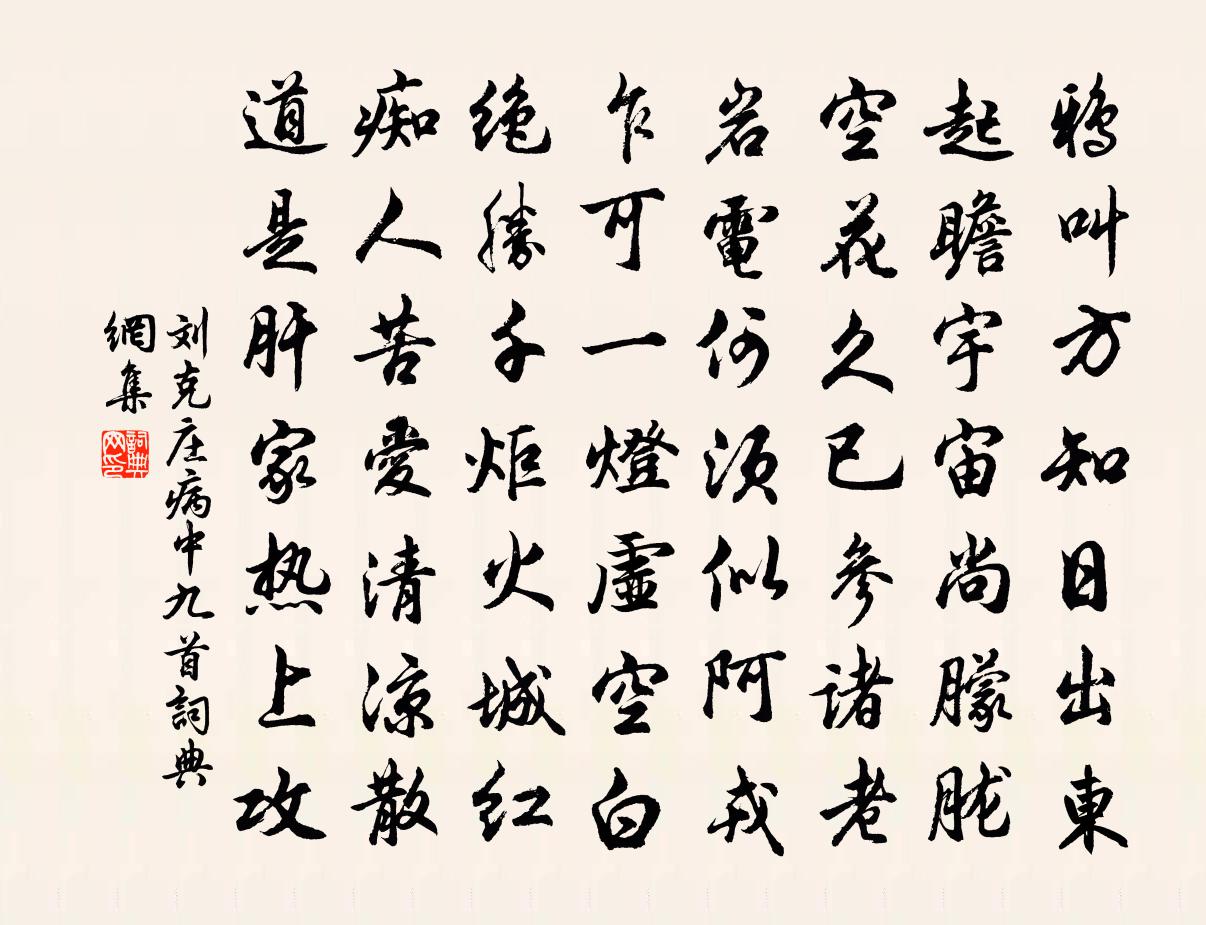 鸦叫方知日出東
起瞻宇宙尚朦胧
空花久已参诸老
岩電何须似阿戎
乍可一燈虚空白
绝勝千炬火城红
痴人苦愛清凉散
道是肝家热上攻
刘克庄病中九首詞典
網集
詞典
网印